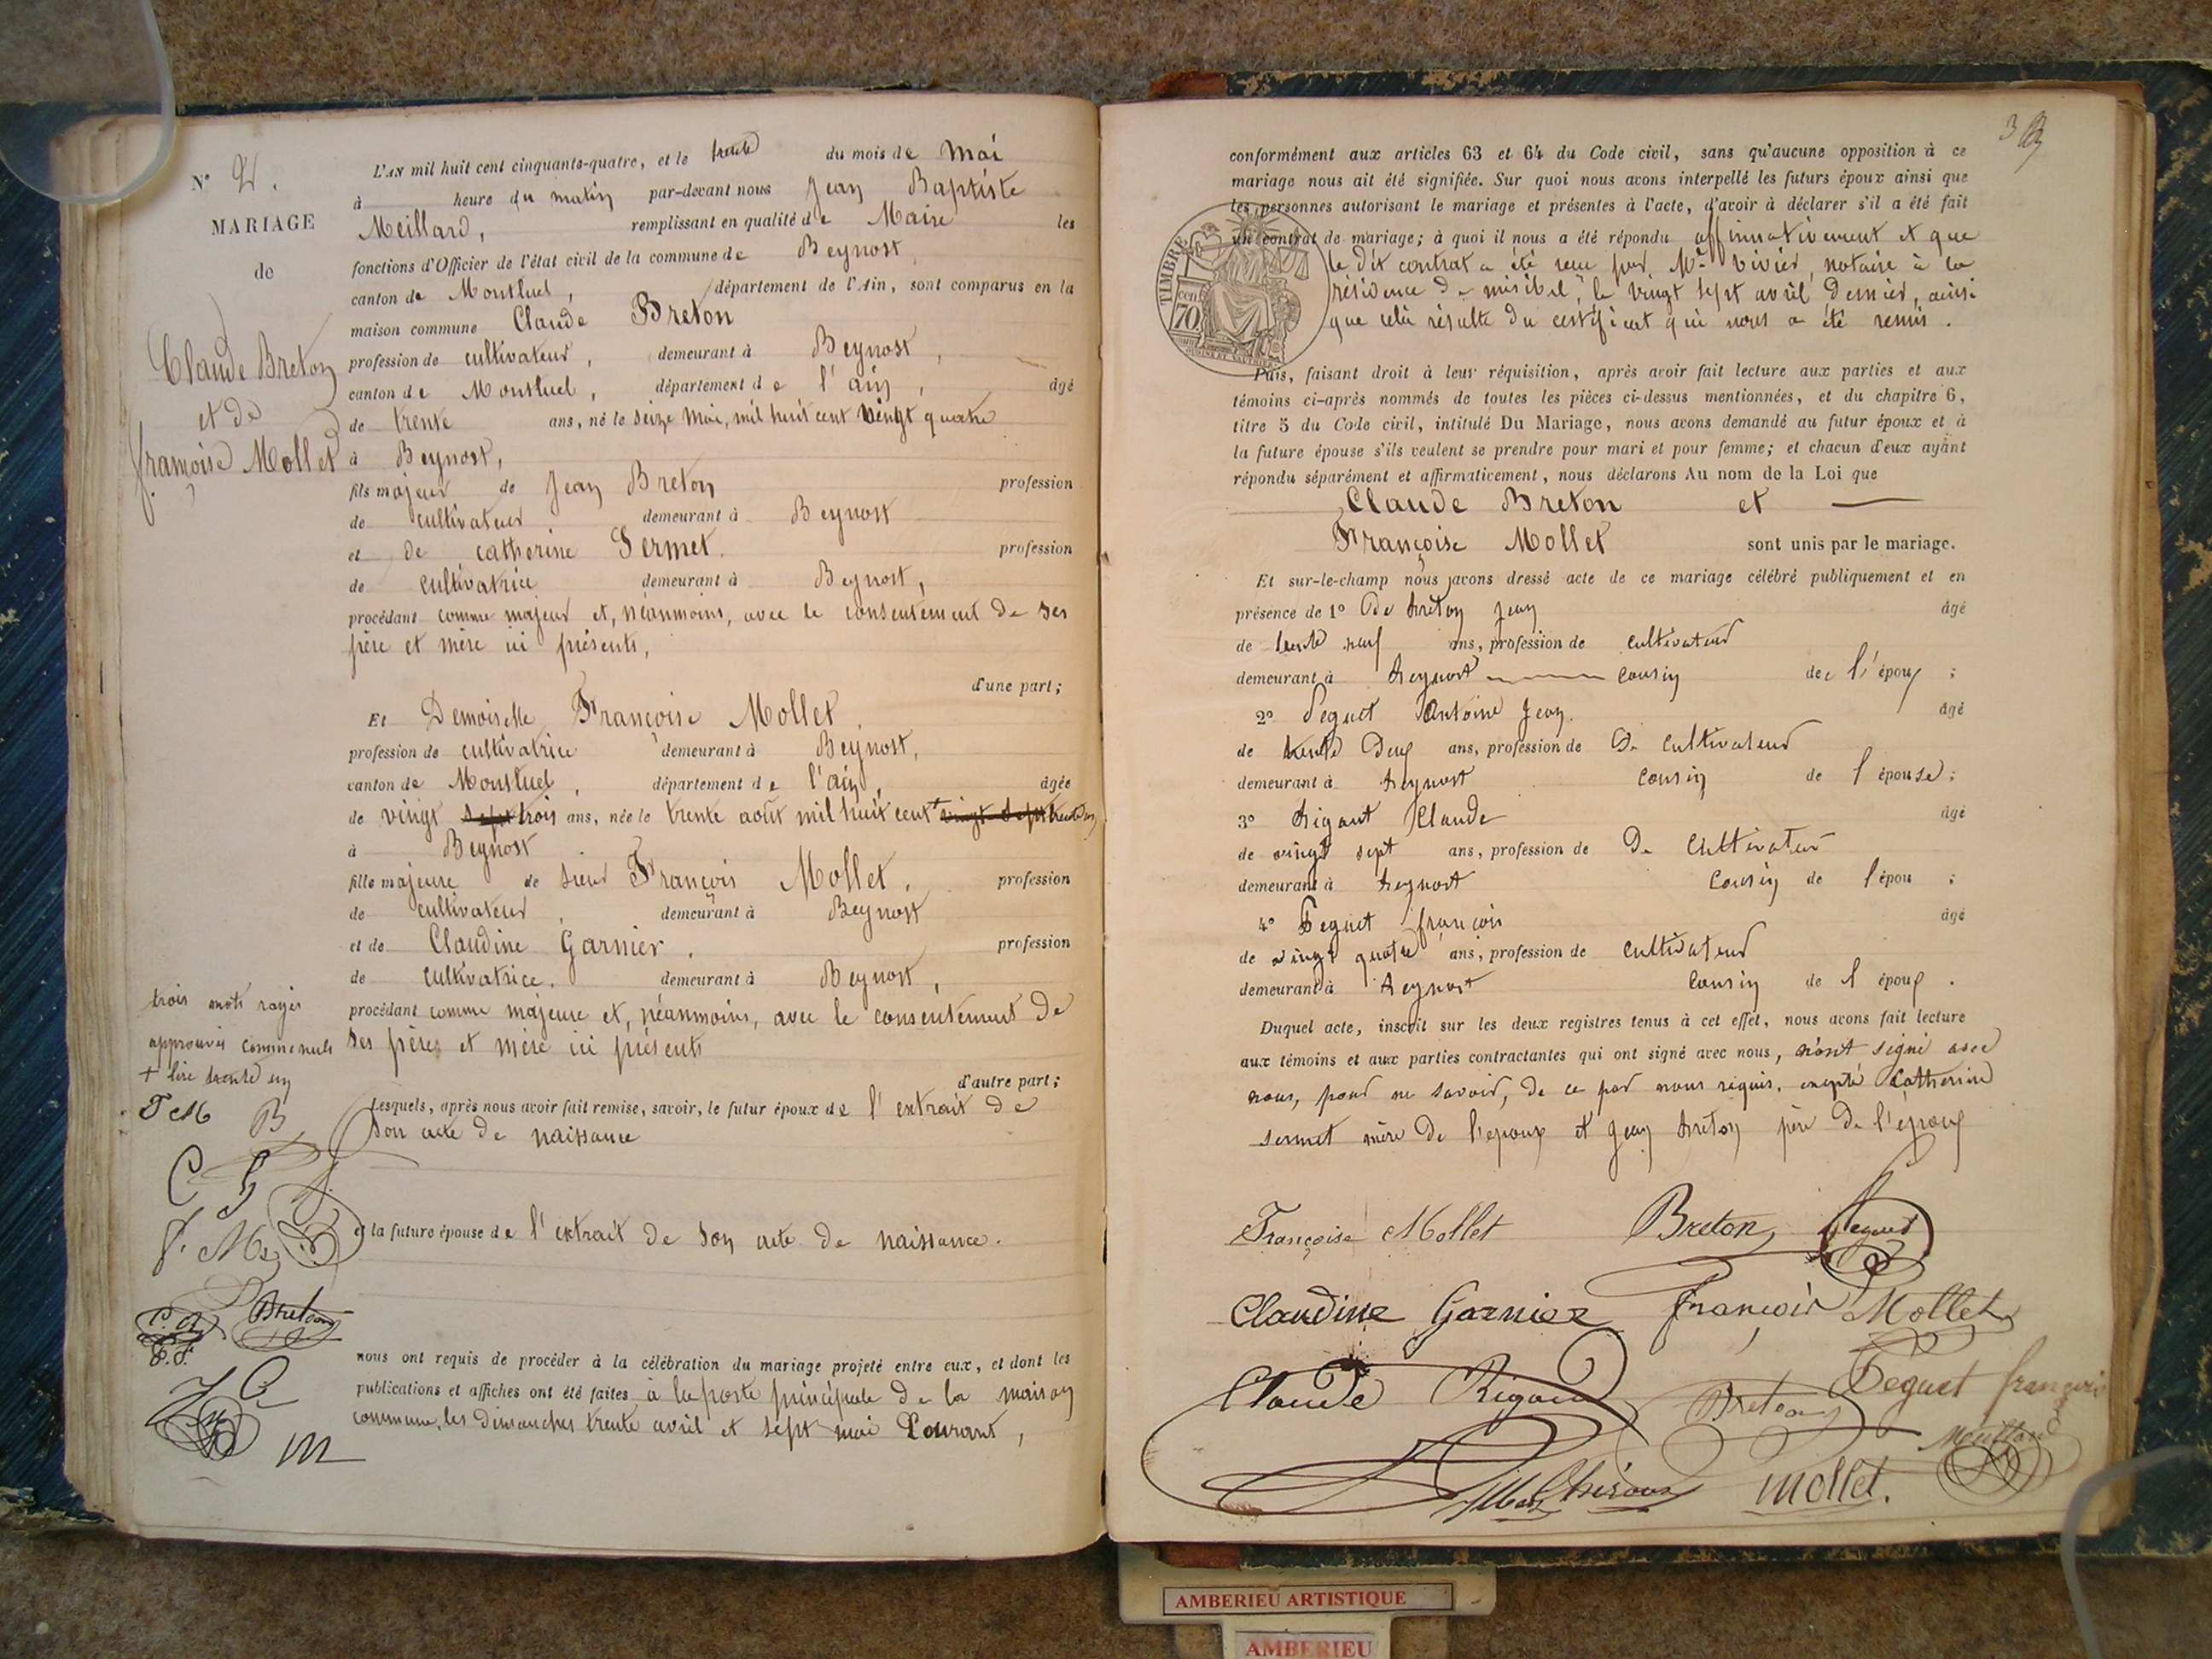 N° 2.
MARIAGE
de
Claude Breton
et de
françoise Mollet
L'AN mil huit cent cinquante-quatre, et le trente du mois de Mai
à heure du matin par-devant nous Jean Baptiste
Meillard, remplissant en qualité de Maire les
fonctions d'Officier de l'état civil de la commune de Beynost,
canton de Montluel, département de l'Ain, sont comparus en la
maison commune Claude Breton
profession de cultivateur, demeurant à Beynost,
canton de Montluel, département de l'ain, âgé
de trente ans, né le seize Mai, mil huit cent vingt quatre
à Beynost,
fils majeur de Jean Breton profession
de cultivateur demeurant à Beynost
et de catherine Sermet. profession
de cultivatrice demeurant à Beynost,
procédant comme majeur et, néanmoins, avec le consentement de ses
père et mère ici présents,
d'une part;
Et Demoiselle Françoise Mollet,
profession de cultivatrice demeurant à Beynost,
canton de Montluel, département de l'ain, âgée
de vingt sept trois ans, née le trente août mil huit cent + vingt sept trente un
à Beynost
fille majeure de sieur François Mollet, profession
de cultivateur, demeurant à Beynost
et de Claudine Garnier. profession
de cultivatrice. demeurant à Beynost,
procédant comme majeure et, néanmoins, avec le consentement de
ses pères et mère ici présents
d'autre part;
trois mots rayés
approuvés comme nuls
+ lire trente un
F M B
Lesquels, après nous avoir fait remise, savoir, le futur époux de l'extrait de
son acte de naissance
et la future épouse de l'extrait de son acte de naissance.
Breton
nous ont requis de procéder à la célébration du mariage projeté entre eux, et dont les
publications et affiches ont été faites à la porte principale de la maison
commune, les Dimanches trente avril et sept mai Courant,
3
conformément aux articles 63 et 64 du Code civil, sans qu'aucune opposition à ce
mariage nous ait été signifiée. Sur quoi nous avons interpellé les futurs époux ainsi que
les personnes autorisant le mariage et présentes à l'acte, d'avoir à déclarer s'il a été fait
un contrat de mariage; à quoi il nous a été répondu affirmativement et que
le dit contrat a été reçu par Me Vivier, notaire à la
résidence de miribel, le vingt sept avril dernier, ainsi
que cela résulte du certificat qui nous a été remis.
TIMBRE
70 cen
Puis, faisant droit à leur réquisition, après avoir fait lecture aux parties et aux
témoins ci-après nommés de toutes les pièces ci-dessus mentionnées, et du chapitre 6,
titre 5 du Code civil, intitulé Du Mariage, nous avons demandé au futur époux et à
la future épouse s'ils veulent se prendre pour mari et pour femme; et chacun d'eux ayant
répondu séparément et affirmativement, nous déclarons Au nom de la Loi que
Claude Breton et
Françoise Mollet sont unis par le mariage.
Et sur-le-champ nous avons dressé acte de ce mariage célébré publiquement et en
présence de 1° De breton Jean âgé
de trente neuf ans, profession de cultivateur
demeurant à beynost cousin de l'époux ;
2° Peguet Antoine Jean. âgé
de trente deux ans, profession de De cultivateur
demeurant à beynost cousin de l'épouse;
3° Rigaut Claude âgé
de vingt sept ans, profession de De cultivateur
demeurant à beynost cousin de l'épou ;
4° Peguet françois âgé
de vingt quatre ans, profession de cultivateur
demeurant à beynost cousin de l'époux.
Duquel acte, inscrit sur les deux registres tenus à cet effet, nous avons fait lecture
aux témoins et aux parties contractantes qui ont signé avec nous, n'ont signé avec
nous, pour ne savoir, de ce par nous requis, excepté Catherine
sermet mère de l'époux et jean breton père de l'époux
Françoise Mollet Breton Peguet
Claudine Garnier françois Mollet
Claude Rigaud Breton Peguet françois
Meillard
mollet.
AMBERIEU ARTISTIQUE
AMBERIEU